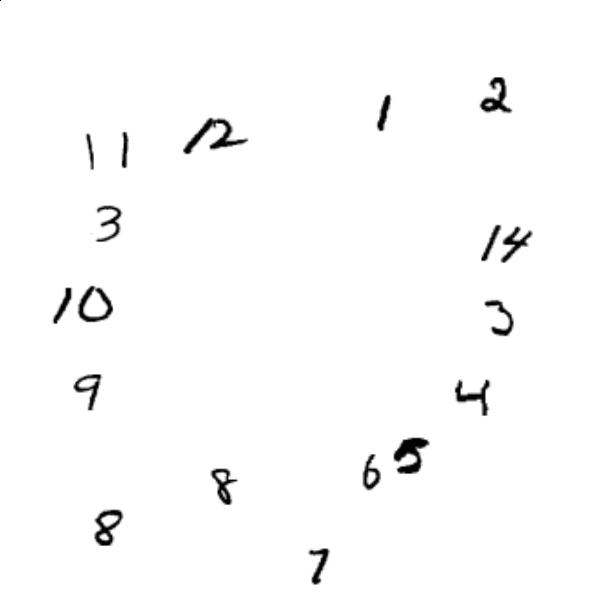 11 12 1 2
3 14
10 3
9 4
8 6 5
8 7